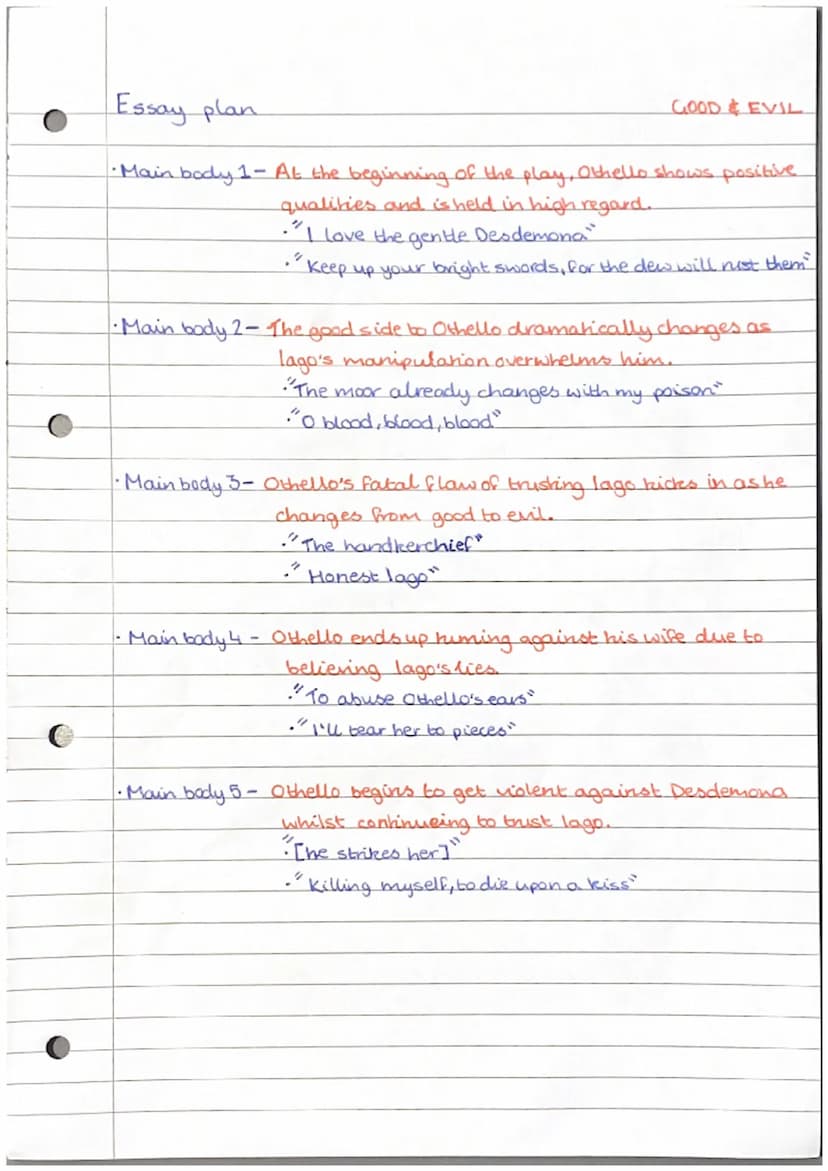 Essay plan GOOD & EVIL
· Main body 1 - At the beginning of the play, Othello shows positive
qualities and is held in high regard.
· "I love the gentle Desdemona"
· "Keep up your bright swords, for the dew will rust them"
· Main body 2 - The good side to Othello dramatically changes as
Iago's manipulation overwhelms him.
· "The moor already changes with my poison"
· "O blood, blood, blood"
· Main body 3 - Othello's fatal flaw of trusting Iago kicks in as he
changes from good to evil.
· "The handkerchief"
· "Honest Iago"
· Main body 4 - Othello ends up turning against his wife due to
believing Iago's lies.
· "To abuse Othello's ears"
· "I'll tear her to pieces"
· Main body 5 - Othello begins to get violent against Desdemona
whilst continueing to trust Iago.
· "[he strikes her]"
· "Killing myself, to die upon a kiss"